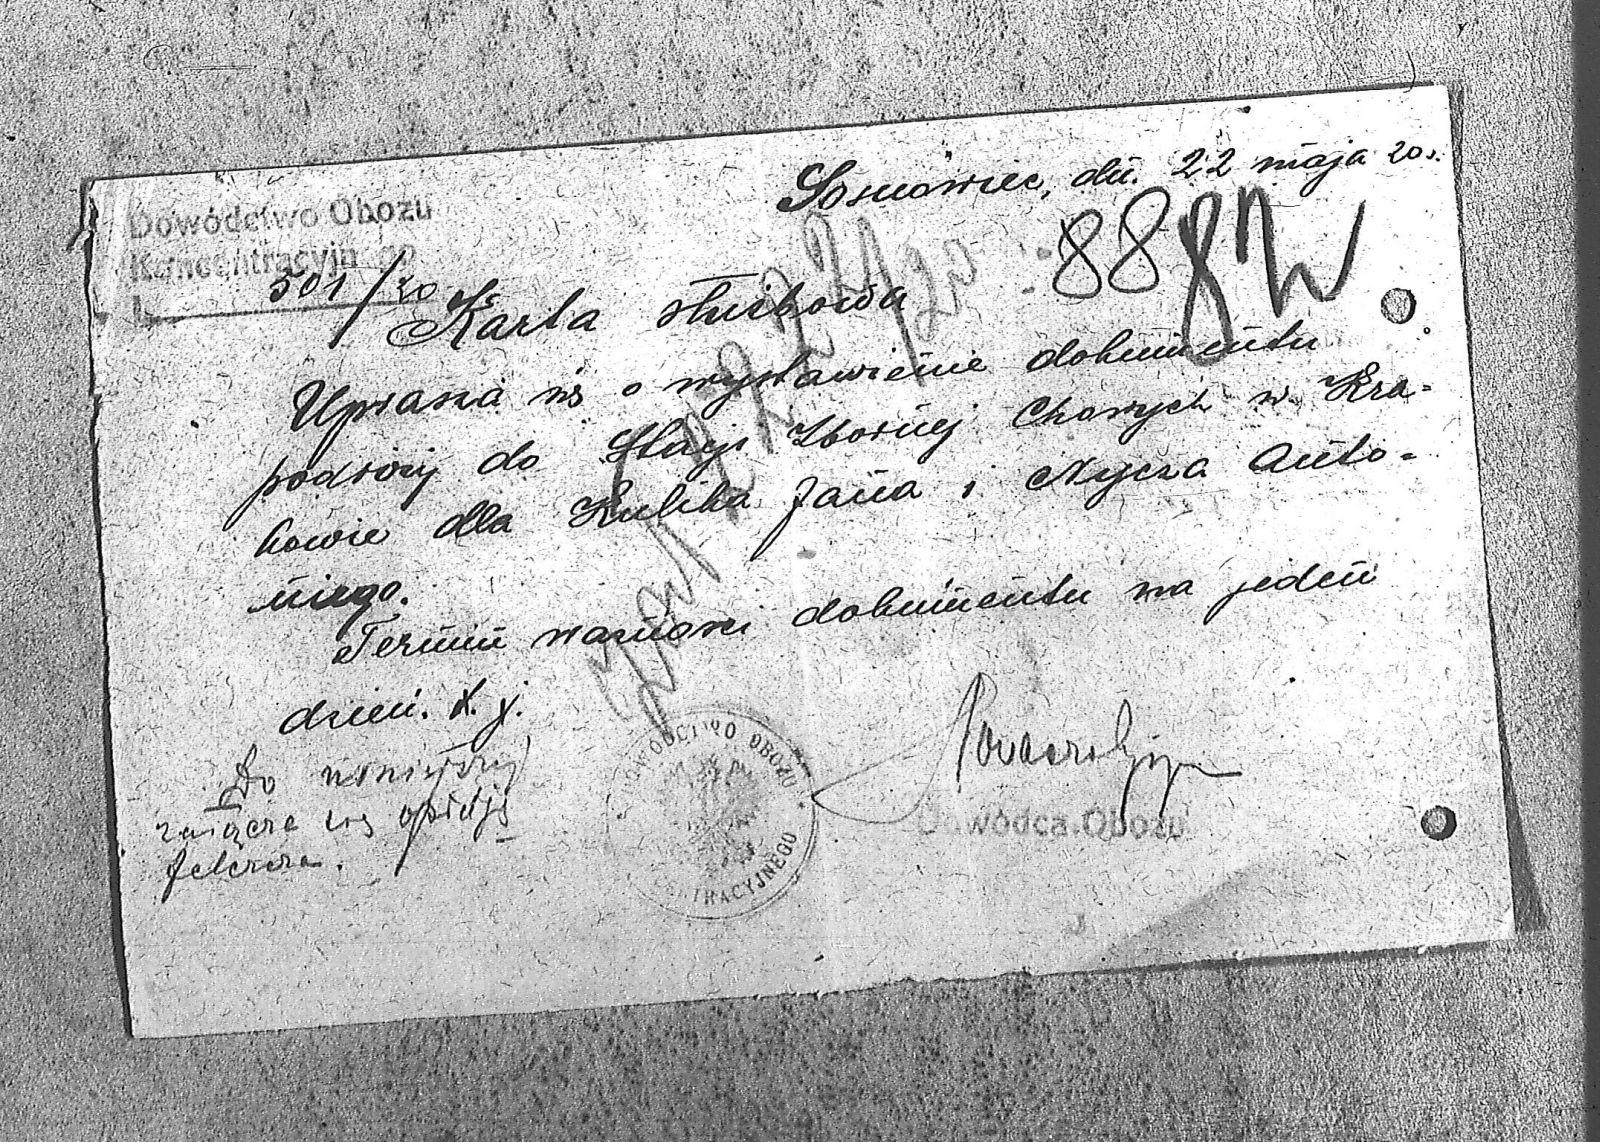 Sosnowiec, dn. 22 maja 20 r.
Dowództwo Obozu
Koncentracyjnego
501/20
888 W
Karta służbowa
Uprasza się o wystawienie dokumentu
podróży do Stacji Zbornej Chorych w Kra-
kowie dla Kulika Jana i Nycza Anto-
niego.
Termin ważności dokumentu na jeden
dzień. t. j.
Do niniejszej
załącza się opinję
felczera.
DOWÓDZTWO OBOZU
KONCENTRACYJNEGO
Dowódca Obozu